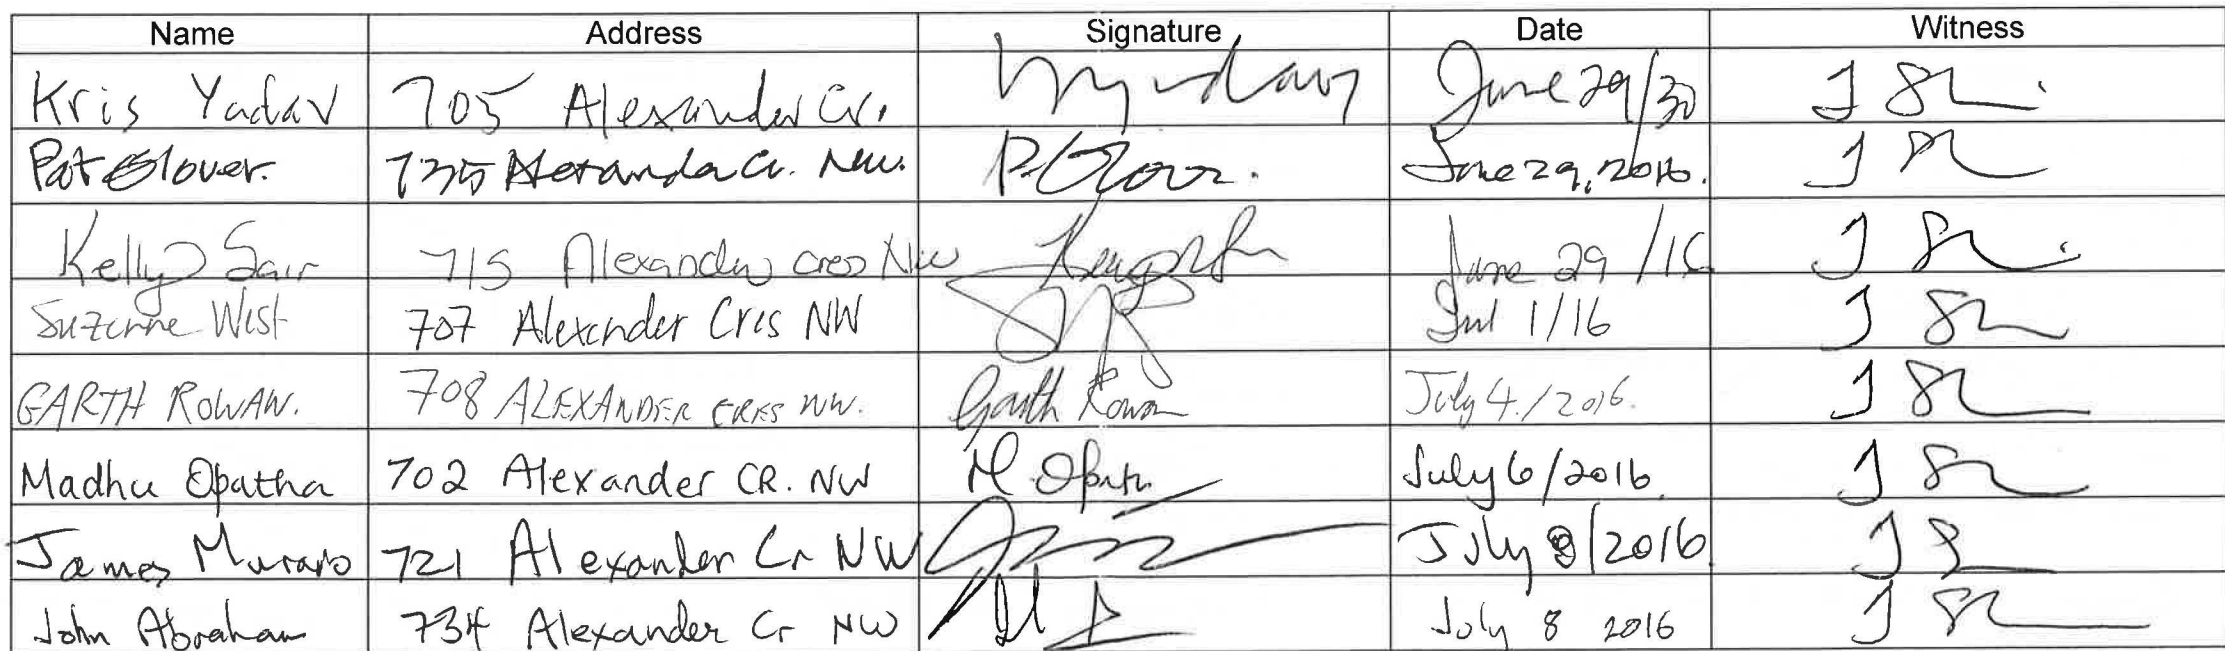 Name Address Signature Date Witness
Kris Yadav 705 Alexander Cr. June 29/30
Pat Glover. 735 Alexander Cr. NW. P. Glover. June 29, 2016.
Kelly Sair 715 Alexander cres NW June 29 /16
Suzanne West 707 Alexander Cres NW Jul 1/16
GARTH ROWAN. 708 ALEXANDER CRES NW. Garth Rowan July 4./2016.
Madhu Opatha 702 Alexander CR. NW M. Opatha July 6/2016.
James Muraro 721 Alexander Cr NW July 8/2016
John Abraham 734 Alexander Cr NW July 8 2016